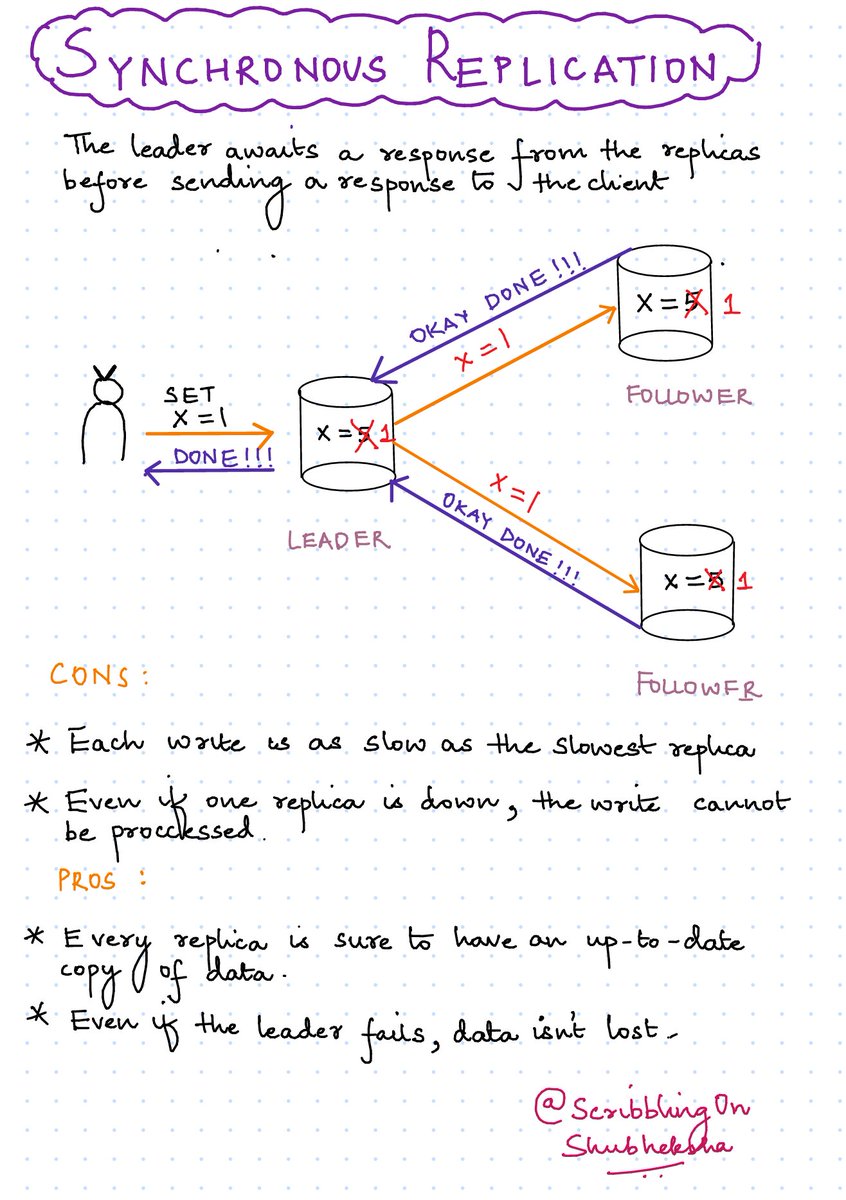 SYNCHRONOUS REPLICATION
The leader awaits a response from the replicas
before sending a response to the client
OKAY DONE!!!
x = 1
x = 5 1
FOLLOWER
SET
X = 1
DONE!!!
x = 5 1
LEADER
x = 1
OKAY DONE!!!
x = 5 1
FOLLOWER
CONS:
* Each write is as slow as the slowest replica
* Even if one replica is down, the write cannot
be proccessed.
PROS:
* Every replica is sure to have an up-to-date
copy of data.
* Even if the leader fails, data isn't lost-
@Scribbling On
Shubheksha